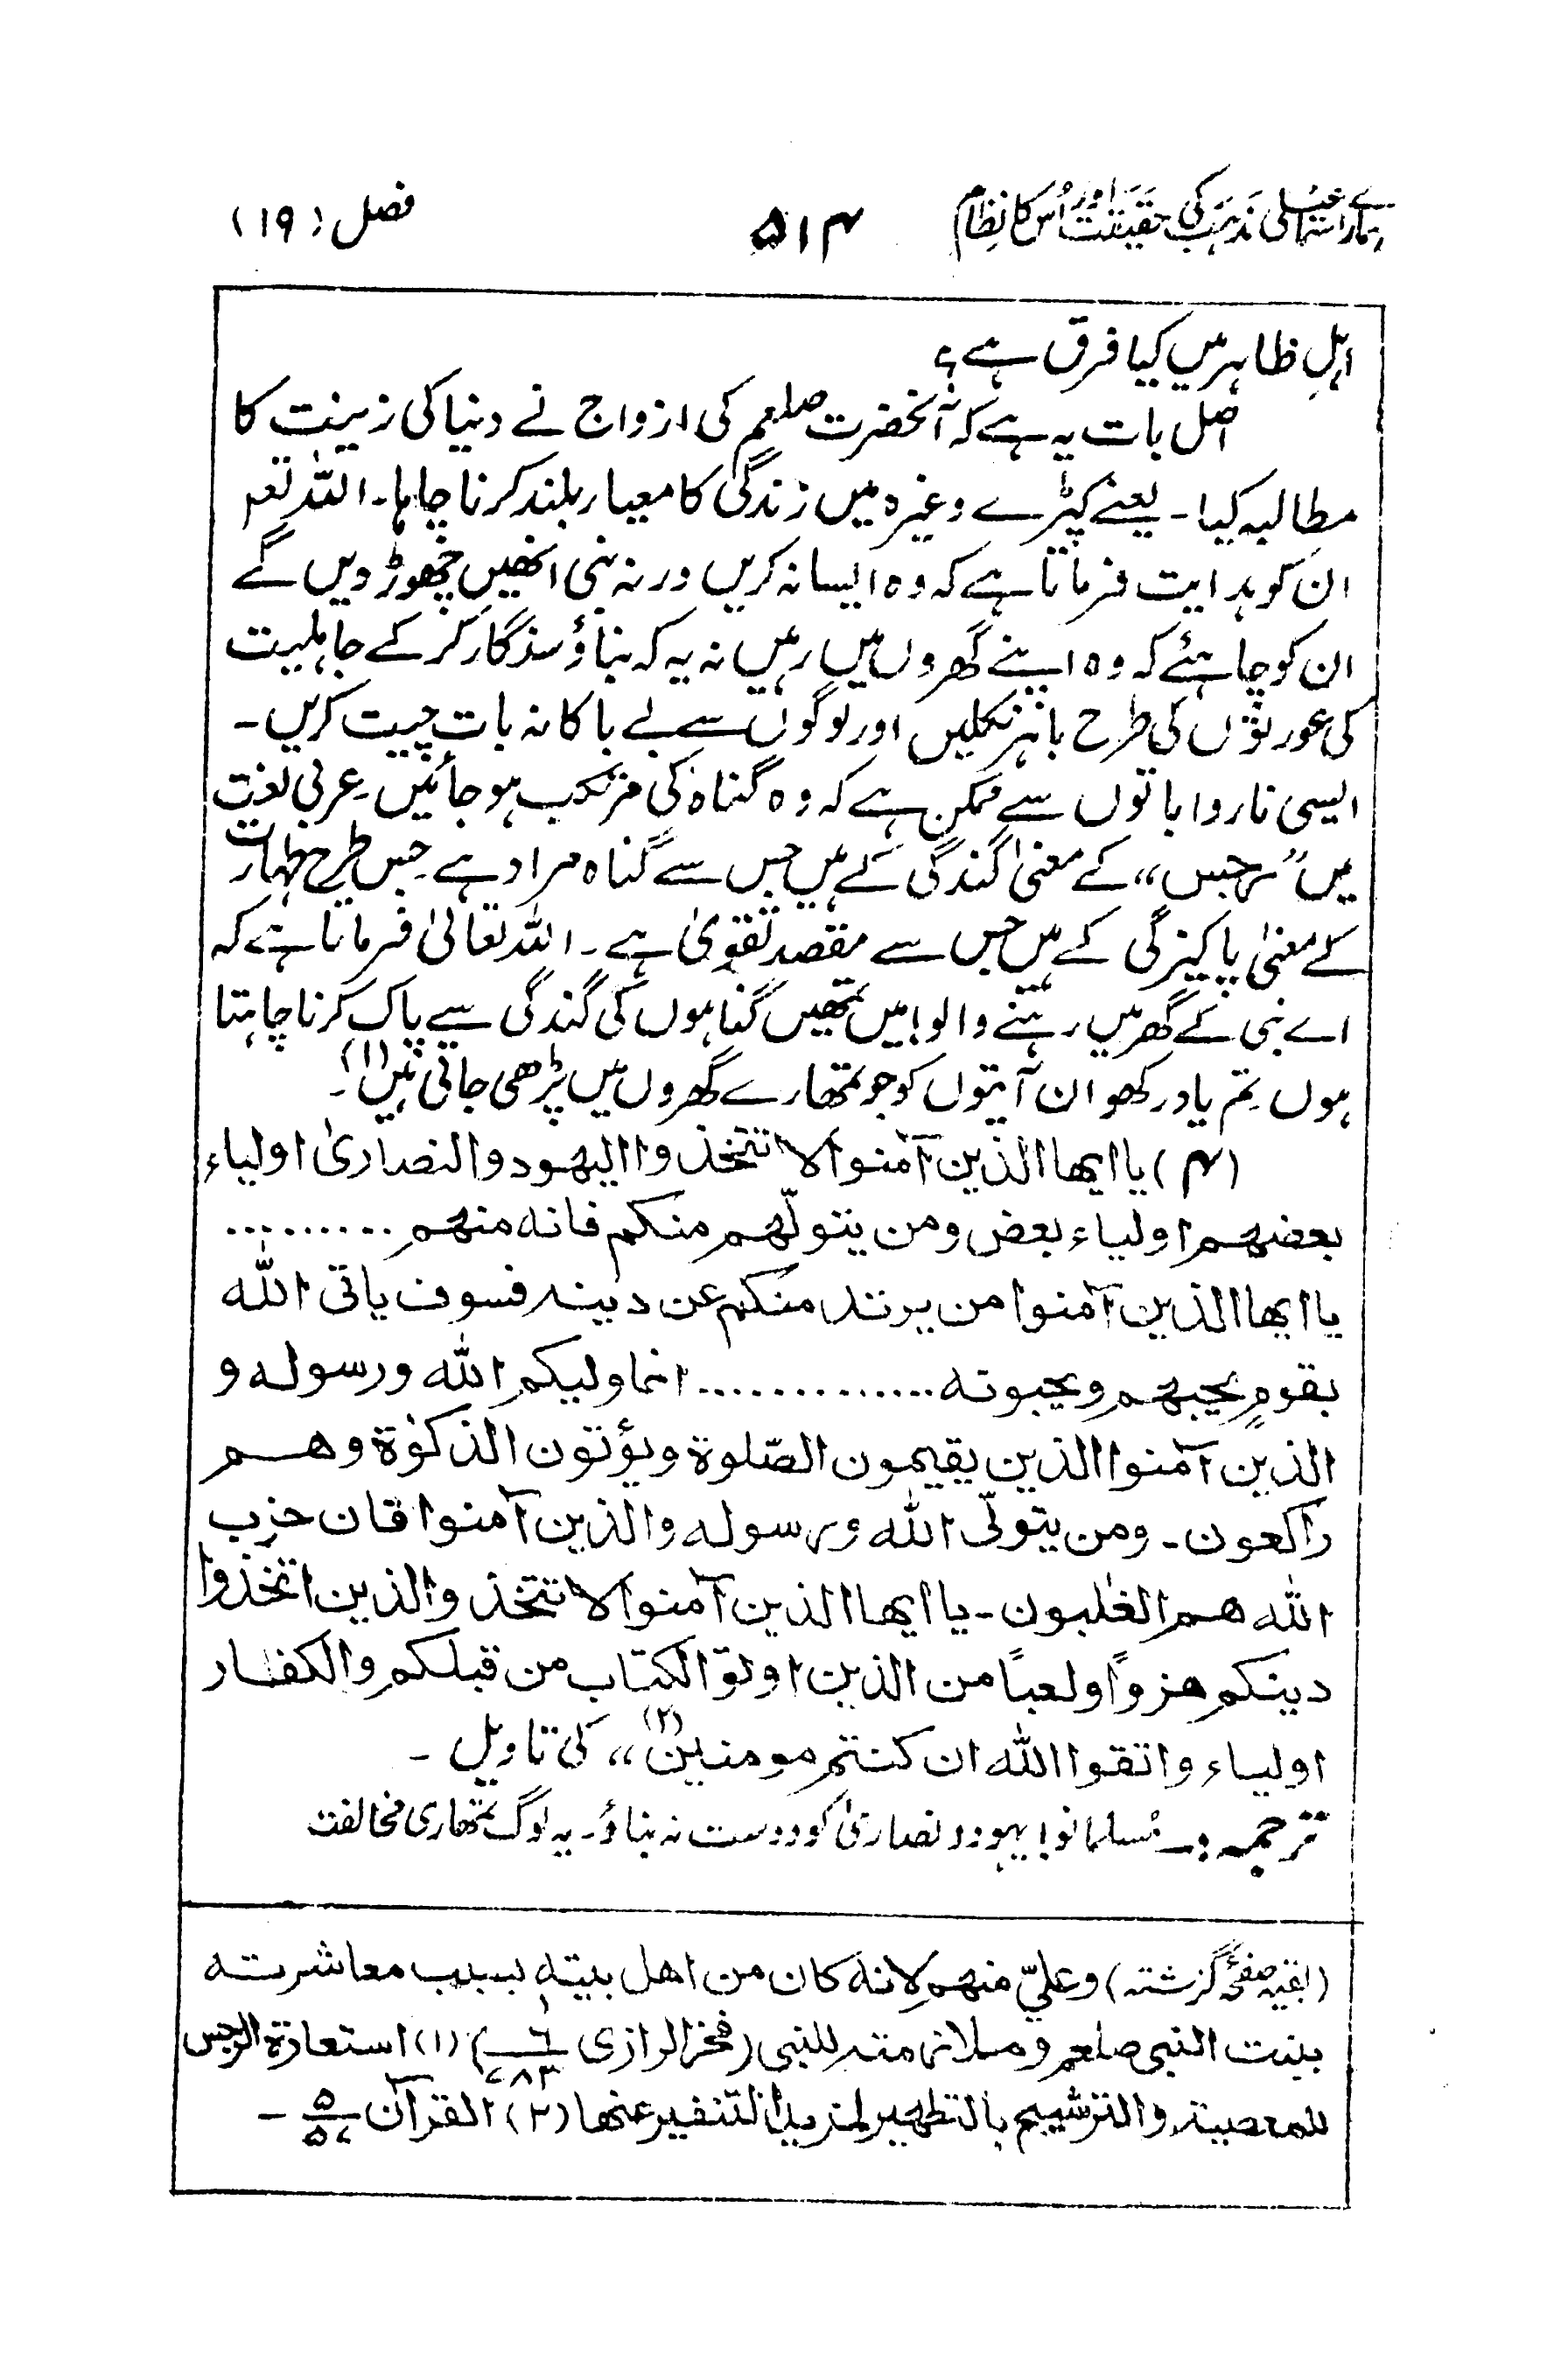 ہمارے اسماعیلی مذہب کی حقیقت اور اُس کا نظام ۵۱۴ فصل (۱۹)
اہلِ ظاہر میں کیا فرق ہے؟
اصل بات یہ ہے کہ آنحضرت صلعم کی ازواج نے دنیا کی زینت کا
مطالبہ کیا۔ یعنے کپڑے وغیرہ میں زندگی کا معیار بلند کرنا چاہا۔ اللہ تعہ
ان کو ہدایت فرماتا ہے کہ وہ ایسا نہ کریں ورنہ نبی انھیں چھوڑ دیں گے
ان کو چاہئے کہ وہ اپنے گھروں میں رہیں نہ یہ کہ بناؤ سنگار کر کے جاہلیت
کی عورتوں کی طرح باہر نکلیں اور لوگوں سے بے باکانہ بات چیت کریں۔
ایسی ناروا باتوں سے ممکن ہے کہ وہ گناہ کی مرتکب ہو جائیں۔ عربی لغت
میں ”رجس،، کے معنیٰ گندگی کے ہیں جس سے گناہ مراد ہے۔ جس طرح طہارت
کے معنیٰ پاکیزگی کے ہیں جس سے مقصد تقویٰ ہے۔ اللہ تعالیٰ فرماتا ہے کہ
اے نبی کے گھر میں رہنے والو! میں تمھیں گناہوں کی گندگی سے پاک کرنا چاہتا
ہوں۔ تم یاد رکھو ان آیتوں کو جو تمھارے گھروں میں پڑھی جاتی ہیں(۱)۔
(۴) یا ایھا الذین آمنوا لا تتخذوا الیھود والنصاریٰ اولیاء
بعضھم اولیاء بعض ومن یتولّھم منکم فانہ منھم .........
یا ایھا الذین آمنوا من یرتد منکم عن دینہ فسوف یاتی اللہ
بقومٍ یحبھم ویحبونہ .............. انما ولیکم اللہ ورسولہ و
الذین آمنوا الذین یقیمون الصّلوۃ ویؤتون الذکوٰۃ وھم
راکعون۔ ومن یتولّی اللہ ورسولہ والذین آمنوا فان حزب
اللہ ھم الغٰلبون۔ یا ایھا الذین آمنوا لا تتخذوا الذین اتخذوا
دینکم ھزواً ولعباً من الذین اوتوا الکتاب من قبلکم والکفار
اولیاء واتقوا اللہ ان کنتم مومنین(۲)،، کی تاویل۔
ترجمہ :۔ مسلمانو! یہود و نصاریٰ کو دوست نہ بناؤ۔ یہ لوگ تمھاری مخالفت
(بقیہ صفحۂ گزشتہ) وعلیّ منھم لانہ کان من اھل بیتہ بسبب معاشرتہ
بنت النبی صلعم وملازمتہ للنبی (فخر الرازی ۶/۷۸۳) (۱) استعارۃ الرجس
للمعصیۃ والترشیح بالتطھیر لمزید التنفیر عنھا (۲) القرآن ۵/۵۷ ۔